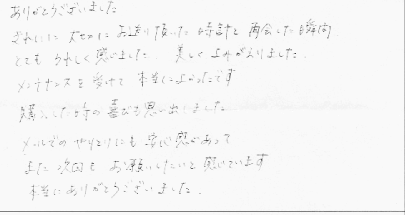 ありがとうございました
きれいに大切にお送り頂いた時計と再会した瞬間
とてもうれしく感じました。美しく上がりました。
メンテナンスを受けて本当によかったです
購入した時の喜びも思い出しました
メールでのやりとりにも安心感があって
また次回もお願いしたいと感じています
本当にありがとうございました。